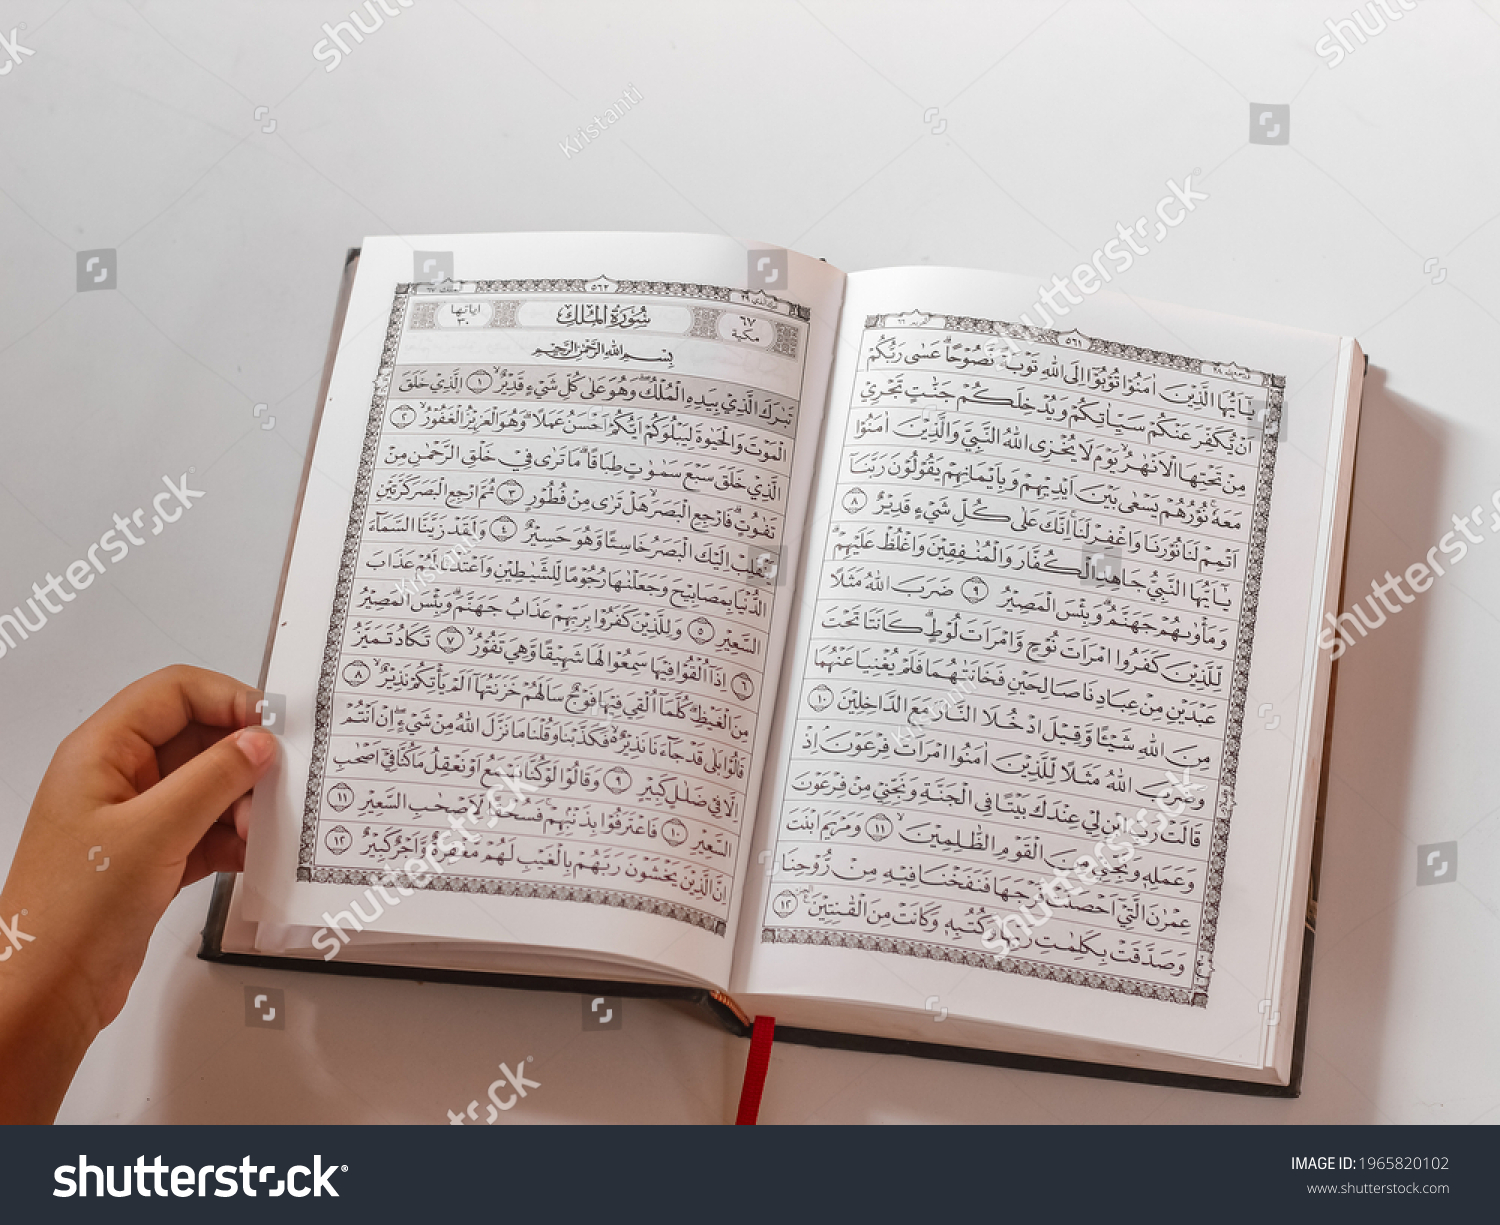 ٥٦١
يٰٓاَيُّهَا الَّذِيْنَ اٰمَنُوْا تُوْبُوْٓا اِلَى اللّٰهِ تَوْبَةً نَّصُوْحًاۗ عَسٰى رَبُّكُمْ
اَنْ يُّكَفِّرَ عَنْكُمْ سَيِّاٰتِكُمْ وَيُدْخِلَكُمْ جَنّٰتٍ تَجْرِيْ
مِنْ تَحْتِهَا الْاَنْهٰرُۙ يَوْمَ لَا يُخْزِى اللّٰهُ النَّبِيَّ وَالَّذِيْنَ اٰمَنُوْا
مَعَهٗۚ نُوْرُهُمْ يَسْعٰى بَيْنَ اَيْدِيْهِمْ وَبِاَيْمَانِهِمْ يَقُوْلُوْنَ رَبَّنَآ
اَتْمِمْ لَنَا نُوْرَنَا وَاغْفِرْ لَنَاۚ اِنَّكَ عَلٰى كُلِّ شَيْءٍ قَدِيْرٌ ٨
يٰٓاَيُّهَا النَّبِيُّ جَاهِدِ الْكُفَّارَ وَالْمُنٰفِقِيْنَ وَاغْلُظْ عَلَيْهِمْۗ
وَمَأْوٰىهُمْ جَهَنَّمُۗ وَبِئْسَ الْمَصِيْرُ ٩ ضَرَبَ اللّٰهُ مَثَلًا
لِّلَّذِيْنَ كَفَرُوا امْرَاَتَ نُوْحٍ وَّامْرَاَتَ لُوْطٍۗ كَانَتَا تَحْتَ
عَبْدَيْنِ مِنْ عِبَادِنَا صَالِحَيْنِ فَخَانَتٰهُمَا فَلَمْ يُغْنِيَا عَنْهُمَا
مِنَ اللّٰهِ شَيْـًٔا وَّقِيْلَ ادْخُلَا النَّارَ مَعَ الدَّاخِلِيْنَ ١٠
وَضَرَبَ اللّٰهُ مَثَلًا لِّلَّذِيْنَ اٰمَنُوا امْرَاَتَ فِرْعَوْنَۘ اِذْ
قَالَتْ رَبِّ ابْنِ لِيْ عِنْدَكَ بَيْتًا فِى الْجَنَّةِ وَنَجِّنِيْ مِنْ فِرْعَوْنَ
وَعَمَلِهٖ وَنَجِّنِيْ مِنَ الْقَوْمِ الظّٰلِمِيْنَۙ ١١ وَمَرْيَمَ ابْنَتَ
عِمْرٰنَ الَّتِيْٓ اَحْصَنَتْ فَرْجَهَا فَنَفَخْنَا فِيْهِ مِنْ رُّوْحِنَا
وَصَدَّقَتْ بِكَلِمٰتِ رَبِّهَا وَكُتُبِهٖ وَكَانَتْ مِنَ الْقٰنِتِيْنَ ١٢
٥٦٢
٦٧ مكية سُوْرَةُ الْمُلْكِ اٰياتها ٣٠
بِسْمِ اللّٰهِ الرَّحْمٰنِ الرَّحِيْمِ
تَبٰرَكَ الَّذِيْ بِيَدِهِ الْمُلْكُۖ وَهُوَ عَلٰى كُلِّ شَيْءٍ قَدِيْرٌۙ ١ الَّذِيْ خَلَقَ
الْمَوْتَ وَالْحَيٰوةَ لِيَبْلُوَكُمْ اَيُّكُمْ اَحْسَنُ عَمَلًاۗ وَهُوَ الْعَزِيْزُ الْغَفُوْرُۙ ٢
الَّذِيْ خَلَقَ سَبْعَ سَمٰوٰتٍ طِبَاقًاۗ مَا تَرٰى فِيْ خَلْقِ الرَّحْمٰنِ مِنْ
تَفٰوُتٍۗ فَارْجِعِ الْبَصَرَۙ هَلْ تَرٰى مِنْ فُطُوْرٍ ٣ ثُمَّ ارْجِعِ الْبَصَرَ كَرَّتَيْنِ
يَنْقَلِبْ اِلَيْكَ الْبَصَرُ خَاسِئًا وَّهُوَ حَسِيْرٌ ٤ وَلَقَدْ زَيَّنَّا السَّمَاۤءَ
الدُّنْيَا بِمَصَابِيْحَ وَجَعَلْنٰهَا رُجُوْمًا لِّلشَّيٰطِيْنِ وَاَعْتَدْنَا لَهُمْ عَذَابَ
السَّعِيْرِ ٥ وَلِلَّذِيْنَ كَفَرُوْا بِرَبِّهِمْ عَذَابُ جَهَنَّمَۗ وَبِئْسَ الْمَصِيْرُ
٦ اِذَآ اُلْقُوْا فِيْهَا سَمِعُوْا لَهَا شَهِيْقًا وَّهِيَ تَفُوْرُۙ ٧ تَكَادُ تَمَيَّزُ
مِنَ الْغَيْظِۗ كُلَّمَآ اُلْقِيَ فِيْهَا فَوْجٌ سَاَلَهُمْ خَزَنَتُهَآ اَلَمْ يَأْتِكُمْ نَذِيْرٌۙ ٨
قَالُوْا بَلٰى قَدْ جَاۤءَنَا نَذِيْرٌ ەۙ فَكَذَّبْنَا وَقُلْنَا مَا نَزَّلَ اللّٰهُ مِنْ شَيْءٍۖ اِنْ اَنْتُمْ
اِلَّا فِيْ ضَلٰلٍ كَبِيْرٍ ٩ وَقَالُوْا لَوْ كُنَّا نَسْمَعُ اَوْ نَعْقِلُ مَا كُنَّا فِيْٓ اَصْحٰبِ
السَّعِيْرِ ١٠ فَاعْتَرَفُوْا بِذَنْۢبِهِمْۚ فَسُحْقًا لِّاَصْحٰبِ السَّعِيْرِ ١١
اِنَّ الَّذِيْنَ يَخْشَوْنَ رَبَّهُمْ بِالْغَيْبِ لَهُمْ مَّغْفِرَةٌ وَّاَجْرٌ كَبِيْرٌ ١٢
Kristanti
shutterstock
IMAGE ID: 1965820102
www.shutterstock.com